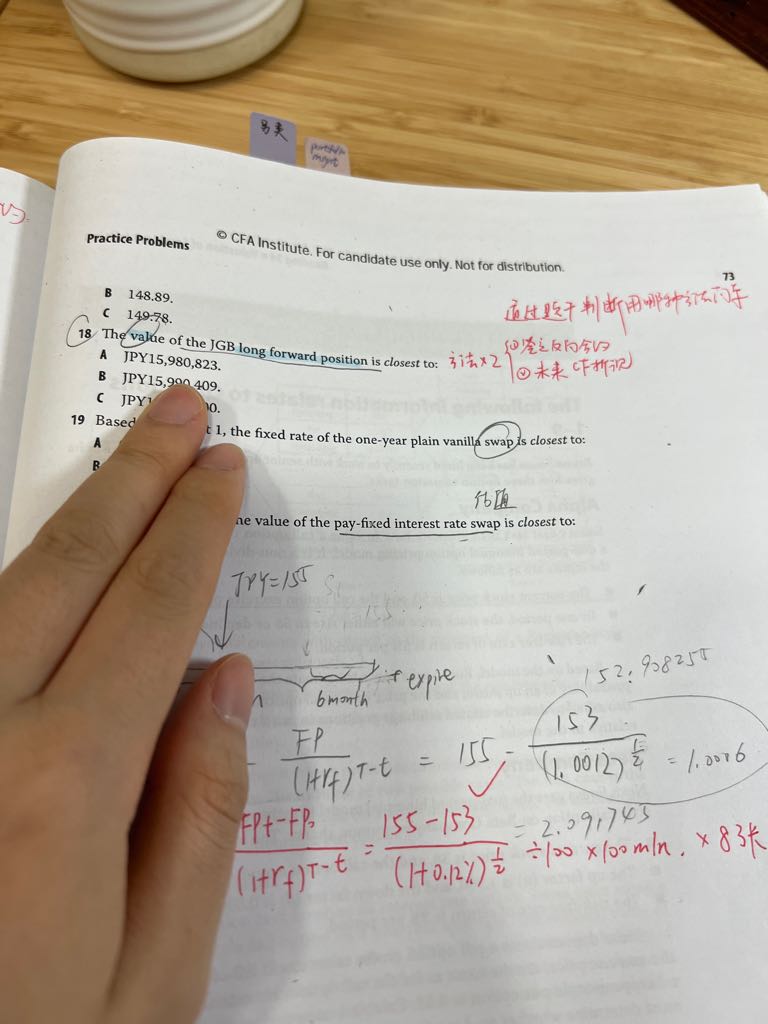 易夹
portfolio
mngnt
Practice Problems
© CFA Institute. For candidate use only. Not for distribution.
73
B 148.89.
C 149.78.
通过题干判断用哪种方法
18 The value of the JGB long forward position is closest to:
方法×2
A JPY15,980,823.
②未来CF折现
B JPY15,990,409.
C JPY1 00.
19 Based t 1, the fixed rate of the one-year plain vanilla swap is closest to:
A
B
he value of the pay-fixed interest rate swap is closest to:
JPY=155
6month
expire
152.908255
- FP/(1+rf)^T-t = 155 - 153/(1.0012)^1/2 = 1.0006
= 2.091745
FPt-FP₀/(1+rf)^T-t = 155-153/(1+0.12%)^1/2 ÷100 ×100 mln. × 83长